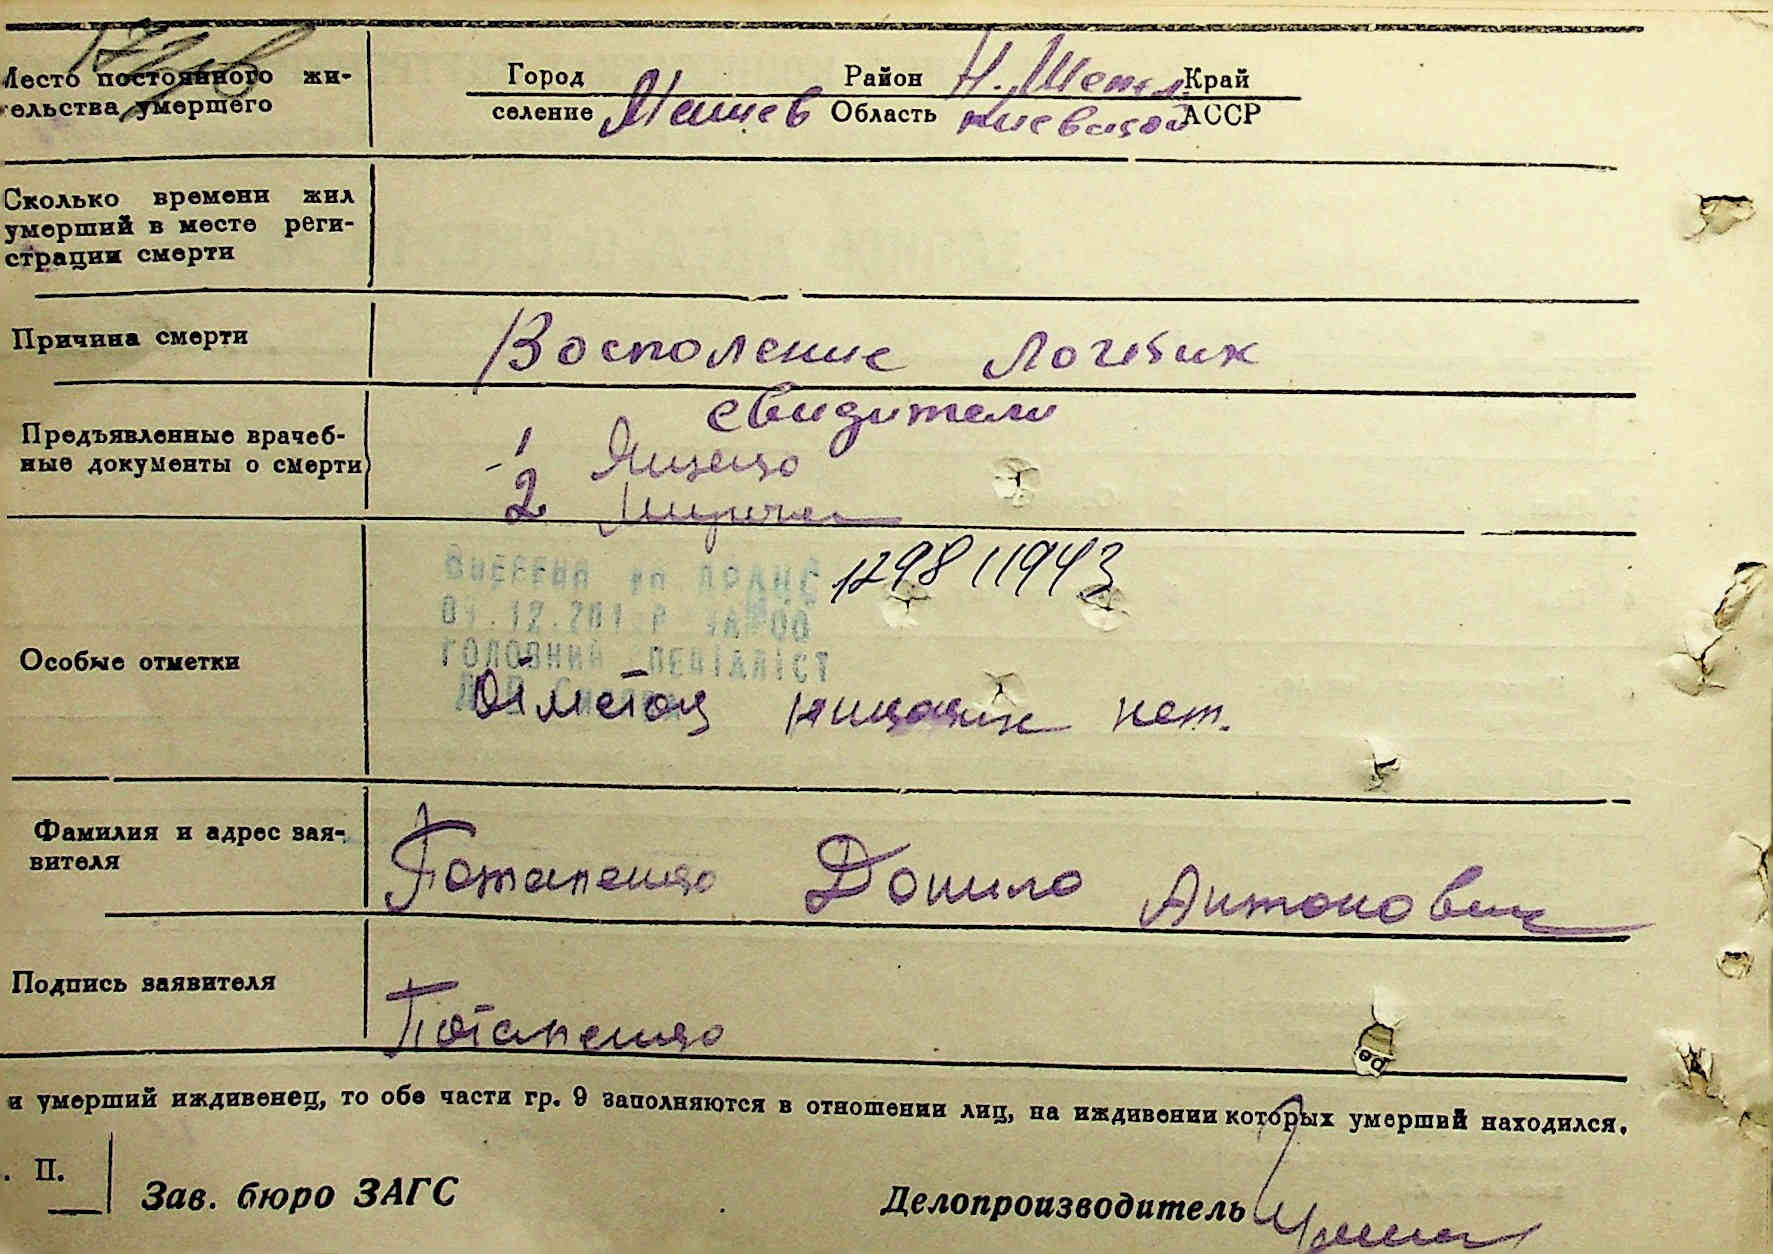 Место постоянного жи-
тельства умершего
Город Район Н. Шепел Край
селение Машев Область Киевской АССР
Сколько времени жил
умерший в месте реги-
страции смерти
Причина смерти
Восполение Логких
Предъявленные врачеб-
ные документы о смерти
свидители
1 Ященко
2
1298 11943
01.12.201
ГОЛОВНИЙ СПЕЦІАЛІСТ
Особые отметки
Отметок никаких нет.
Фамилия и адрес зая-
вителя
Потапенко Донило Антонович
Подпись заявителя
Потапенко
и умерший иждивенец, то обе части гр. 9 заполняются в отношении лиц, на иждивении которых умерший находился.
. П.
Зав. бюро ЗАГС
Делопроизводитель